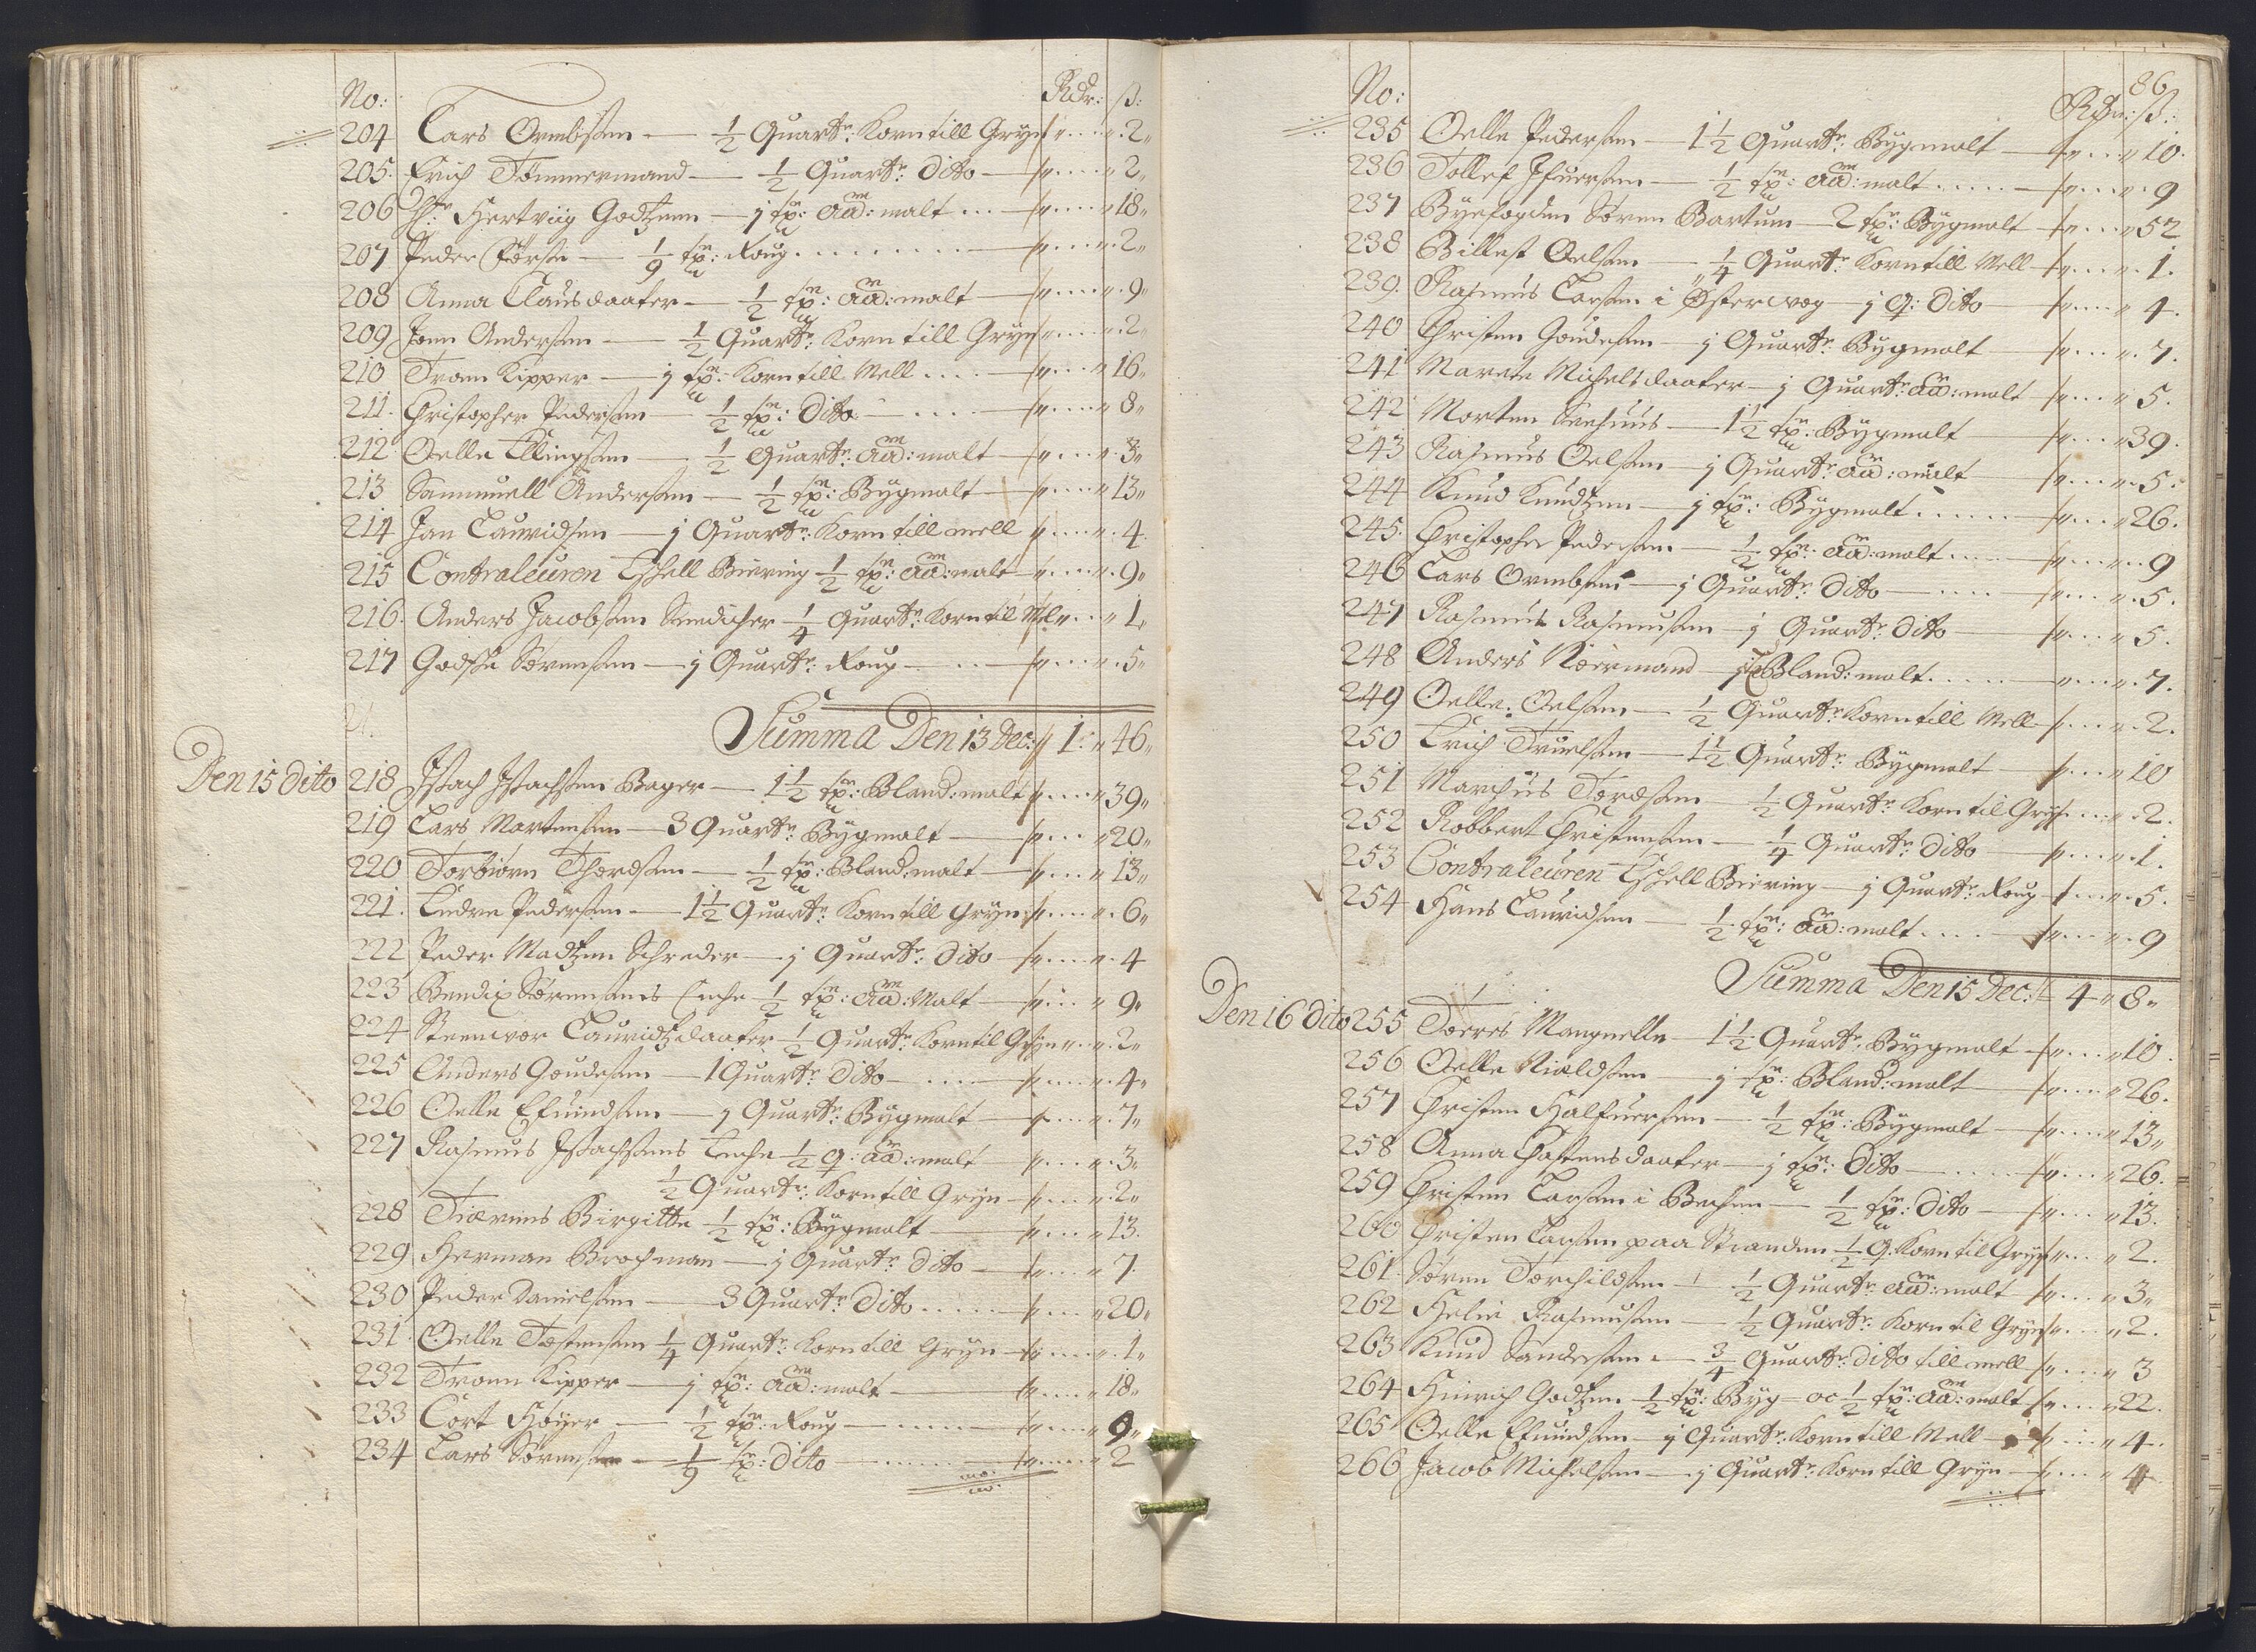 No: Rdr: ß:
204 Lars Ormbsen — 1/2 Quartr: Korn till Gryn „ 2„
205. Erich Tømmermand — 1/2 Quartr: dito — „ 2„
206 Hr: Hertvig Godtzen — j tøn: aad: malt ... „ 18„
207 Peder — 1/9 tøn: Roug „ 2„
208 Anna Clausdaater — 1/2 tøn: aad: malt — „ 9„
209 Jonn Andersen — 1/2 Quartr: Korn till Gryn „ 2„
210 Tronn Kipper — j tøn: Korn till Mell „ 16„
211. Christopher Pedersen — 1/2 tøn: dito „ 8„
212. Oelle Ellingsen — 1/2 Quartr: aad: malt — „ 3„
213 Sammuell Andersen — 1/2 tøn: Bygmalt — „ 13„
214 Jan Lauridsen — j Quartr: Korn till mell „ 4
215 Contraleuren Eschell Biering 1/2 tøn: aad: malt — „ 9„
216. Anders Jacobsen Snedicher 1/4 Quartr: Korn til Mel „ 1„
217 Godske Sørensen — j Quartr: Roug — „ 5„
Summa Den 13 Dec: 1: „ 46„
Den 15 dito 218 Isach Isachsen Bager — 1 1/2 tøn: Bland: malt „ 39„
219 Lars Mortensen — 3 Quartr: Bygmalt — „ 20„
220 Torbiørn Thordsen — 1/2 tøn: Bland: malt — „ 13„
221. Endre Pedersen — 1 1/2 Quartr: Korn till Gryn „ 6„
222 Peder Madtzen Schreder — j Quartr: dito „ 4
223 Bendix Sørensens Enche 1/2 tøn: aad: Malt — „ 9„
224 Steenvor Lauridtzdaater 1/2 Quartr: Korn til Gryn „ 2„
225 Anders Goudesen — 1 Quartr: dito — „ 4„
226 Oelle Efuindsen — j Quartr: Bygmalt — „ 7„
227 Rasmus Isachsens Enche 1/2 q: aad: malt — „ 3„
1/2 Quartr: Korn till Gryn — „ 2„
228 Birgitte 1/2 tøn: Bygmalt — „ 13.
229 Herman Brochman — j Quartr: dito — „ 7.
230 Peder Danielsen — 3 Quartr: dito „ 20„
231. Oelle Tostensen 1/4 Quartr: Korn till Gryn — „ 1„
232 Tronn Kipper — j tøn: aad: malt — „ 18„
233 Cort Høyer — 1/2 tøn: Roug — „ 9„
234 Lars Sørensen — 1/9 tøn: dito — „ 2
86
No: Rdr: ß:
235 Oelle Pedersen — 1 1/2 Quartr: Bygmalt — „ 10.
236 Tollef Ifuersen — 1/2 tøn: aad: malt „ 9
237 Byefogden Søren Bartum — 2 tøn: Bygmalt — „ 52
238 Oelsen — 1/4 Quartr: Korn till Mell — „ 1.
239. Rasmus Larsen i Østervog — j q: dito — „ 4.
240 Christen Goudesen — j Quartr: Bygmalt — „ 7.
241 Marete Michelsdaater — j Quartr: aad: malt — „ 5.
242 Morten — 1 1/2 tøn: Bygmalt — „ 39.
243 Rasmus Oelsen — j Quartr: aad: malt — „ 5.
244 Knud Knudtzen — j tøn: Bygmalt „ 26.
245. Christopher Pedersen — 1/2 tøn: aad: malt „ 9
246 Lars Ormbsen — j Quartr: dito — „ 5.
247 Rasmus Rasmusen — j Quartr: dito — „ 5.
248 Anders Kiermand — j q Bland: malt „ 7.
249 Oelle Oelsen — 1/2 Quartr: Korn till Mell — „ 2.
250 Erich Truelsen — 1 1/2 Quartr: Bygmalt — „ 10
251 Marchus Tordsen — 1/2 Quartr: Korn til Gryn „ 2.
252 Robbert Christensen — 1/4 Quartr: dito — „ 1.
253 Contraleuren Eschell Biering — j Quartr: Roug — „ 5.
254 Hans Lauridsen — 1/2 tøn: aad: malt „ 9
Summa Den 15 Dec: 4 „ 8„
Den 16 dito 255 Torres Mangnelle — 1 1/2 Quartr: Bygmalt — „ 10.
256 Oelle Nieldsen — j tøn: Bland: malt — „ 26.
257 Christen Halfuersen — 1/2 tøn: Bygmalt — „ 13„
258 Anna daater — j tøn: Dito — „ 26.
259 Christen Larsen i — 1/2 tøn: dito — „ 13.
260 Christen Larsen paa Stranden 1/2 q. Korn til Gryn „ 2.
261. Søren Torchildsen — 1/2 Quartr: aad: malt „ 3„
262 Helie Rasmusen — 1/2 Quartr: Korn til Gryn „ 2.
263 Knud Sandersen — 3/4 Quartr: dito till mell „ 3
264 Hinrich Godtzen 1/2 tøn: Byg — oc 1/2 tøn: aad: malt „ 22.
265 Oelle Efuindsen — j Quartr: Korn till Mell — „ 4.
266 Jacob Michelsen — j Quartr: Korn till Gryn — „ 4